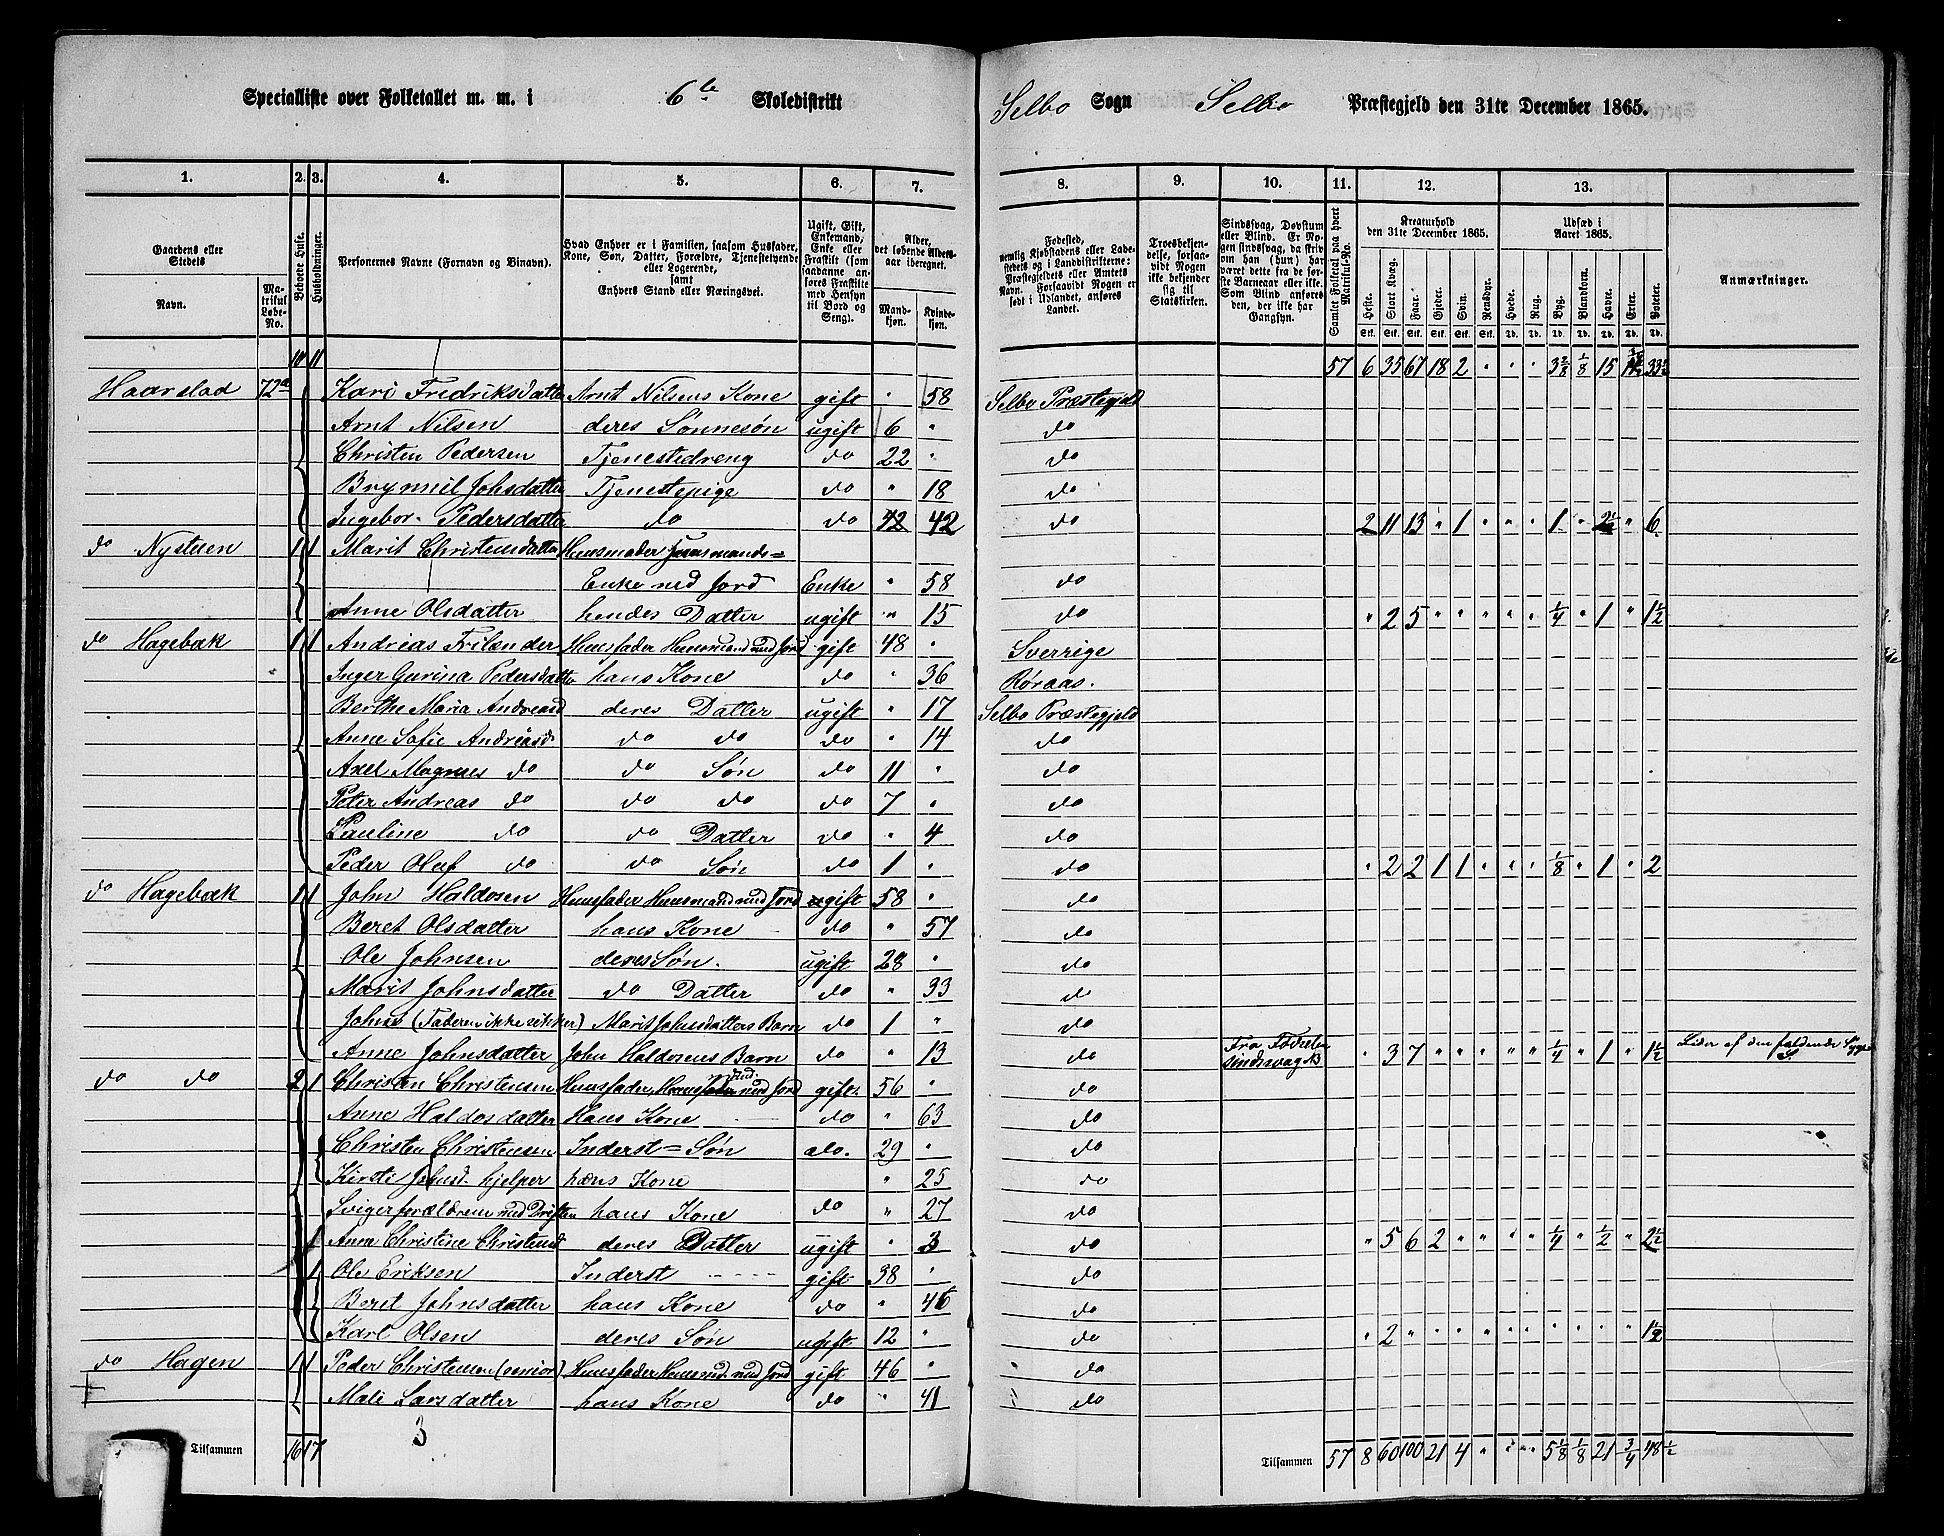 Specialliste over Folketallet m. m. i 6te Skoledistrikt Selbo Sogn Selbo Præstegjeld den 31te December 1865.
1. 2. 3. 4. 5. 6. 7. 8. 9. 10. 11. 12. 13.
Gaardens eller Stedets
Navn.
Matrikul Løbe-No.
Beboede Huse.
Husholdninger.
Personernes Navne (Fornavn og Binavn).
Hvad Enhver er i Familien, saasom Husfader, Kone, Søn, Datter, Forældre, Tjenestetyende eller Logerende, samt Enhvers Stand eller Næringsvei.
Ugift, Gift, Enkemand, Enke eller Fraskilt (som saadanne anføres Fraskilte med Hensyn til Bord og Seng).
Alder, det løbende Aldersaar iberegnet.
Mandkjøn.
Kvindekjøn.
Fødested, nemlig Kjøbstadens eller Ladestedets og i Landdistrikterne: Præstegjeldets eller Amtets Navn. Forsaavidt Nogen er født i Udlandet, anføres Landet.
Troesbekjendelse, forsaavidt Nogen ikke bekjender sig til Statskirken.
Sindssvag, Døvstum eller Blind. Er Nogen sindssvag, da skrives om han (hun) har været dette fra de første Barneaar eller ikke. Som Blind anføres den, der ikke har Gangsyn.
Samlet Folketal paa hvert Matrikul-No.
Kreaturhold den 31te December 1865.
Heste. Stort Kvæg. Faar. Gjeder. Svin. Rensdyr.
Udsæd i Aaret 1865.
Hvede. Rug. Byg. Blandkorn. Havre. Erter. Poteter.
Stk. Stk. Stk. Stk. Stk. Stk. Td. Td. Td. Td. Td. Td. Td.
Anmærkninger.
10 11 57 6 35 67 18 2 " " " 3 3/8 1/8 15 33½
Haarstad 72a Kari Fredriksdatter Arnt Nilsens Kone gift " 58 Selbo Præstegjeld
Arnt Nilsen deres Sønnesøn ugift 6 " do
Christen Pedersen Tjenestedreng do 22 " do
Brynnil Johsdatter Tjenestepige do " 18 do
Ingebor Pedersdatter do do 42 42 do 2 11 13 " 1 " " " 1 " 2½ " 6
do Nystuen 1 1 Marit Christensdatter Huusmoder Huusmands=
Enke med Jord Enke " 58 do
Anne Olsdatter hendes Datter ugift " 15 do " 2 5 " " " " " 1/4 " 1 " 1½
do Hagebæk 1 1 Andreas Frilænder Huusfader Huusmand med Jord gift 48 " Sverrige
Inger Gurina Pedersdatter hans Kone do " 36 Røraas.
Berthe Maria Andreasd deres Datter ugift " 17 Selbo Præstegjeld
Anne Sofie Andreasd do do do " 14 do
Axel Magnus do do Søn do 11 " do
Peter Andreas do do do do 7 " do
Pauline do do Datter do " 4 do
Peder Oluf do do Søn do 1 " do " 2 2 1 1 " " " 1/8 " 1 " 2
do Hagebæk 1 1 John Haldosen Huusfader Huusmand med Jord gift 58 " do
Beret Olsdatter hans Kone do " 57 do
Ole Johnsen deres Søn. ugift 28 " do
Marit Johnsdatter do Datter do " 33 do
Johns (Faderen ikke sikker) Marit Johnsdatters Barn do 1 " do
Anne Johnsdatter John Haldosens Barn do " 13 do Fra Fødselen Sindssvag " 3 7 " " " " " 1/4 " 1 " 1½ Lider af den faldende Syge
do do 2 1 Christen Christensen Huusfader, med Jord gift. 56 " do
Anne Haldosdatter Hans Kone do " 63 do
Christen Christensen Inderst = Søn do. 29 " do
Kirsti Johnsd. hjelper hans Kone " 25 do
Svigerforældrene med Driften hans Kone do " 27 do
Anne Christine Christensd deres Datter ugift " 3 do " 5 6 2 " " " " 1/4 " 1/2 " 2½
1 Ole Eriksen Inderst gift 38 " do
Beret Johnsdatter hans Kone do " 46 do
Karl Olsen deres Søn ugift 12 " do " 2 " " " " " " " " " " 1½
do Hagen 1 1 Peder Christensen (senior) Huusfader Huusmd. med Jord gift 46 " do
Mali Larsdatter hans Kone do " 41 do
3
Tilsammen 16 17 Tilsammen 57 8 60 100 21 4 " " " 5 1/8 1/8 21 3/4 48½